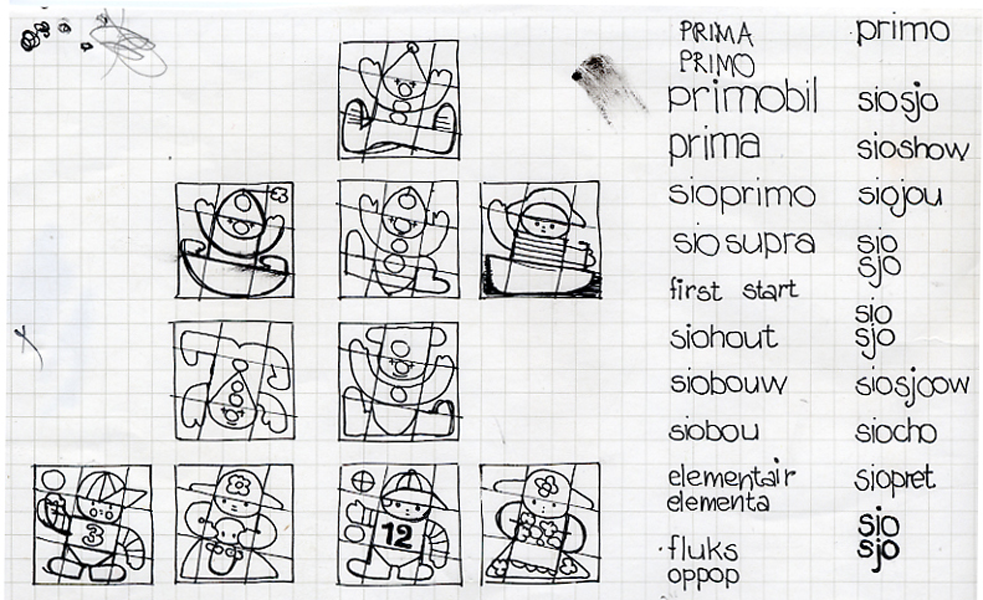 PRIMA
PRIMO
primobil
prima
sioprimo
siosupra
first start
siohout
siobouw
siobou
elementair
elementa
fluks
oppop
primo
siosjo
sioshow
siojou
sio
sjo
sio
sjo
siosjoow
siocho
siopret
sio
sjo
3
12